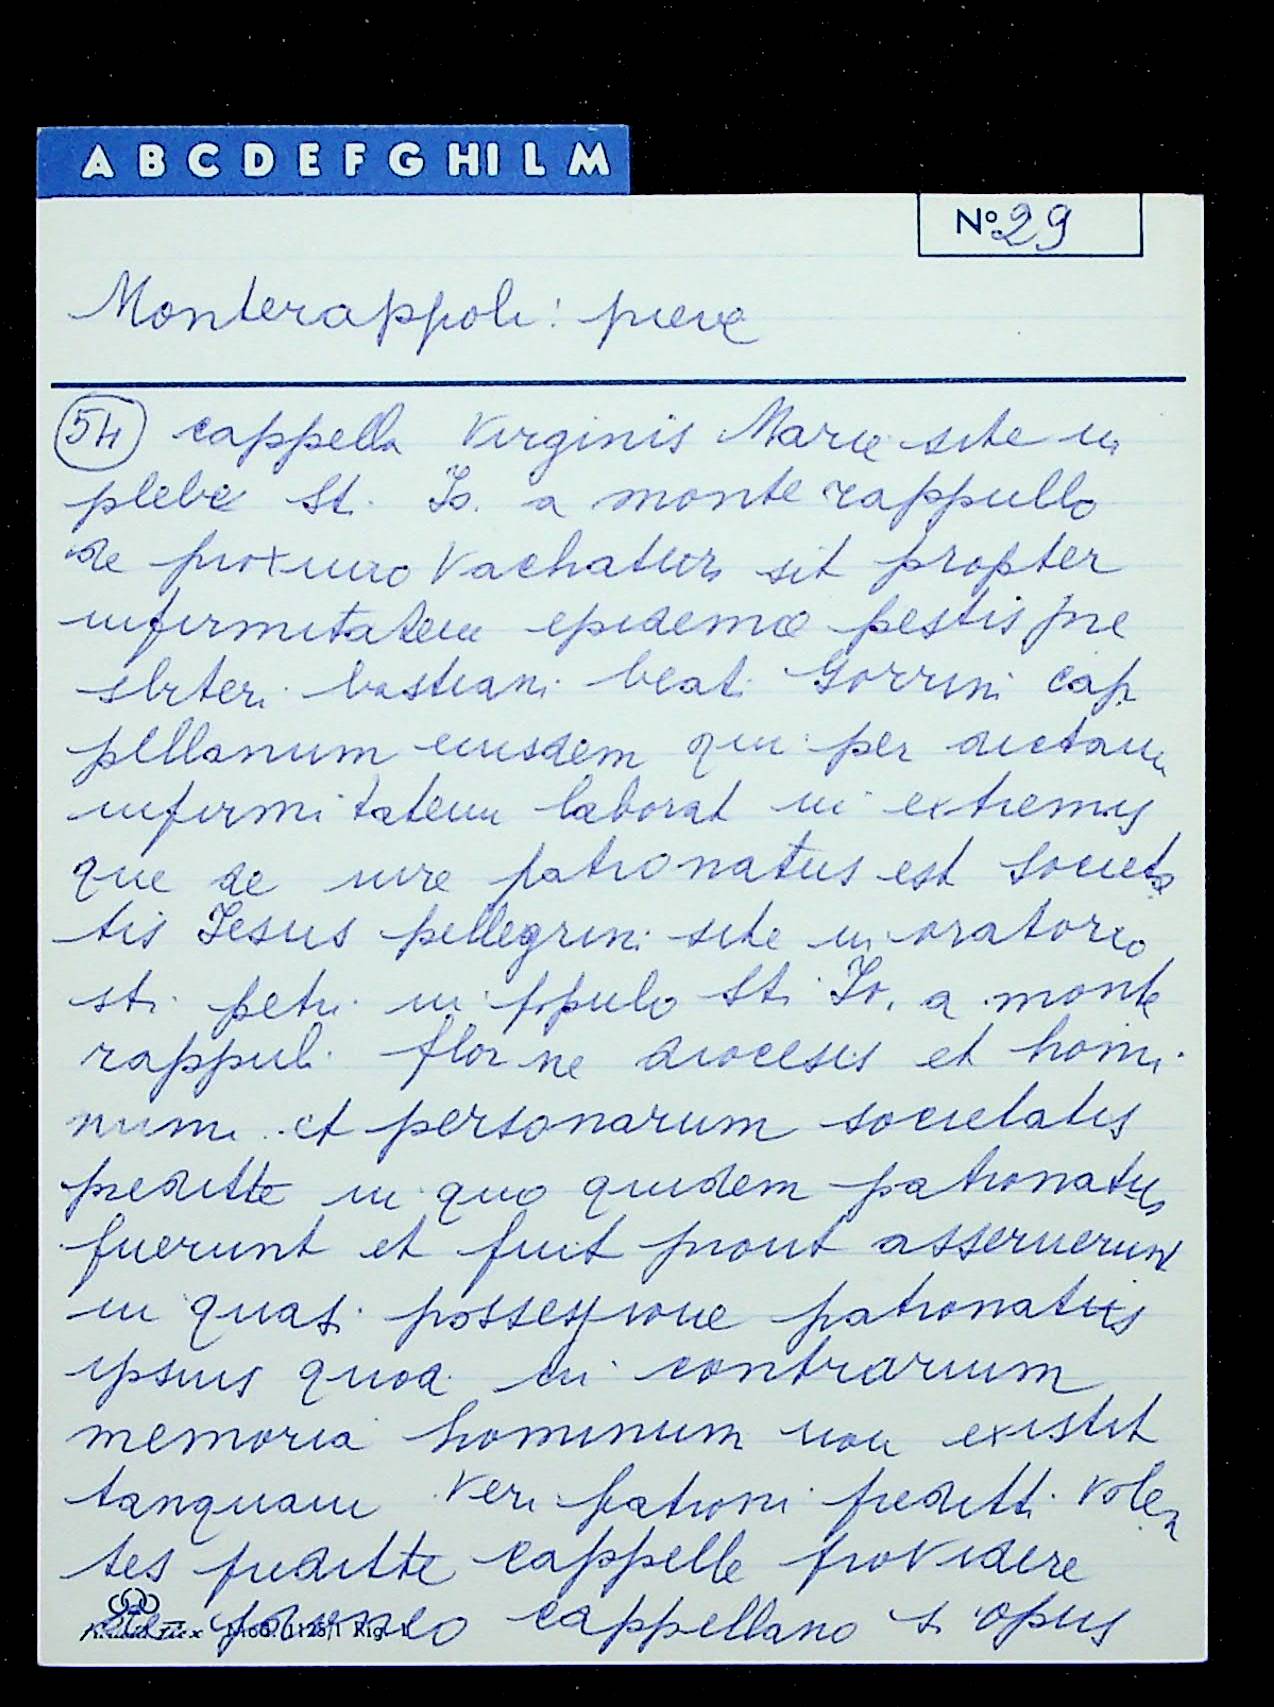 A B C D E F G HI L M
No 29
Monterappoli: pieve
54 cappella Virginis Marie site in
plebe Sti. Jo. a monte rappullo
de proximo Vachatur sit propter
infirmitatem epidemie pestis pre
sbiteri bastiani beati Gorrini cap
pellanum eiusdem qui per dictam
infirmitatem laborat in extremis
que de iure patronatus est Societa
tis Jesus pellegrini site in oratorio
sti petri in populo Sti Jo. a monte
rappuli flor ne diocesis et homi
num et personarum societatis
preditte in quo quidem patronatus
fuerunt et fuit prout asseruerunt
in quasi possessione patronatus
ipsius quod in contrarium
memoria hominum non existit
tanquam veri patroni preditti volen
tes preditte cappelle providere
de cappellano si opus
Mod. 1125/1 Rig. 1